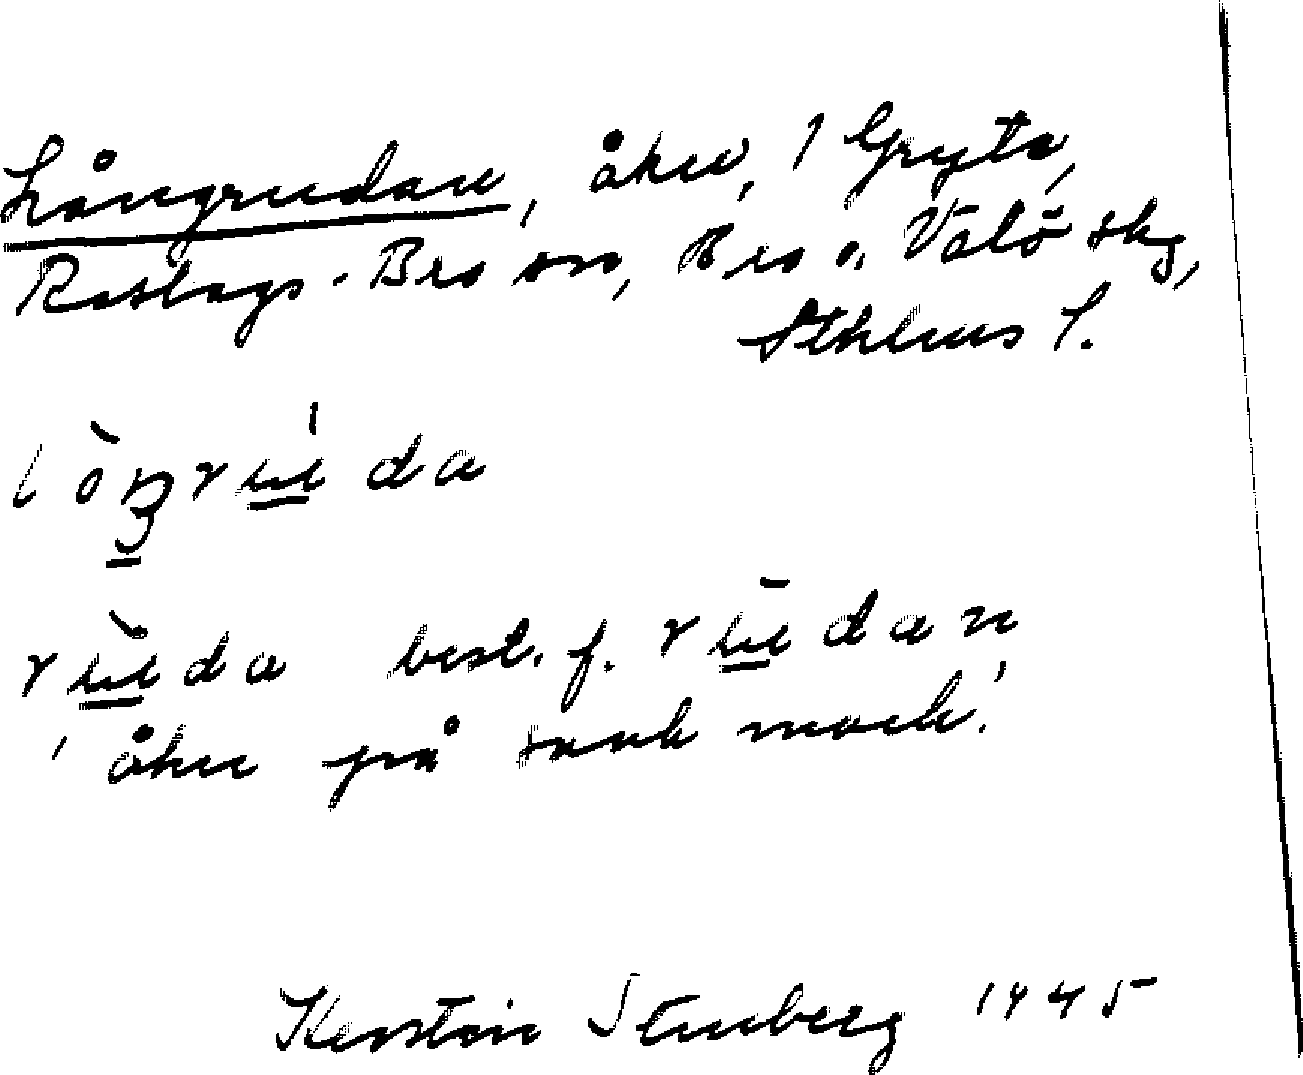 Långrudan, åker, 1 Gryta,
Roslags-Bro sn, Bro o. Väłö skg,
Sthlms l.
rud̀a best. f. rudan
'åker på sank mark.'
Kerstin Stenberg 1945